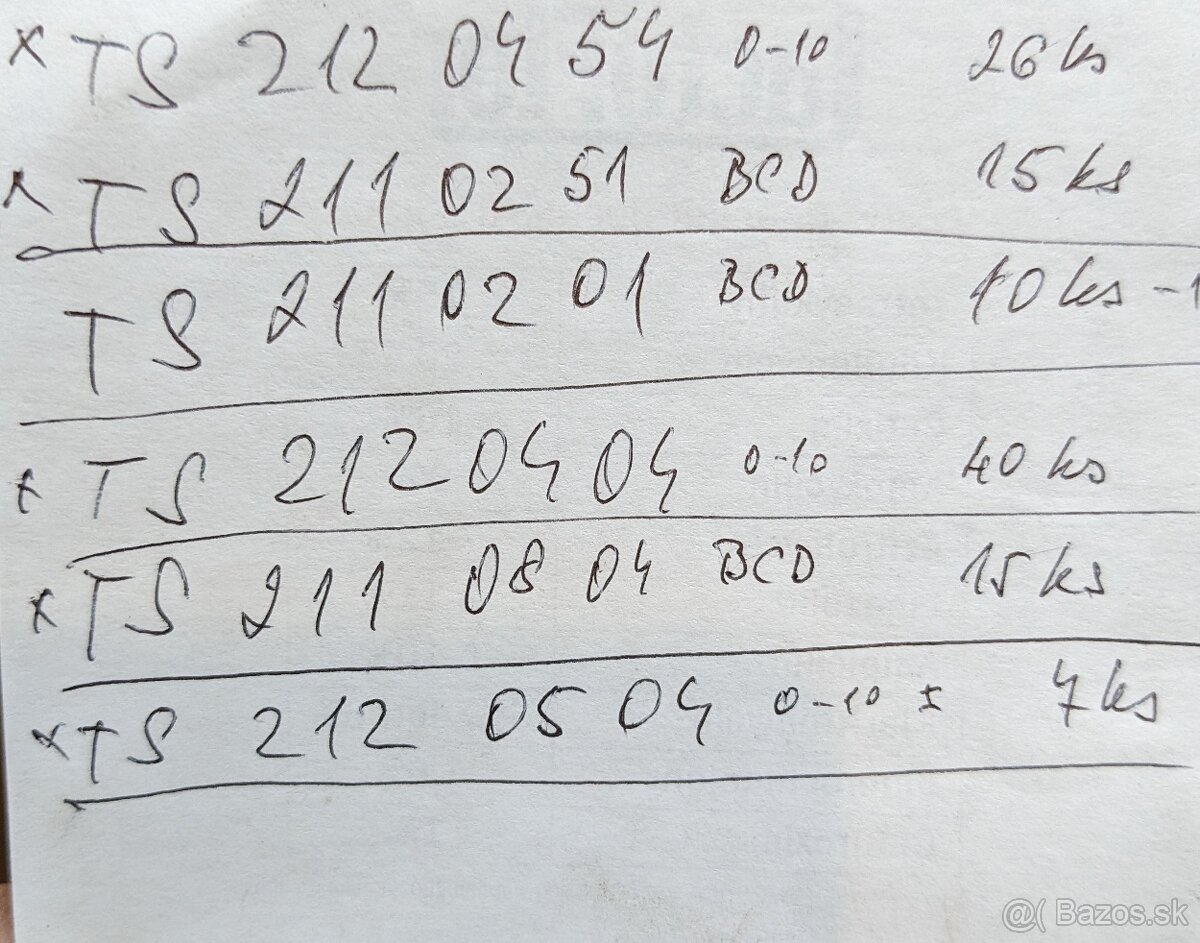 x TS 212 04 54 0-10 26 ks
x TS 211 02 51 BCD 15 ks
TS 211 02 01 BCD 10 ks - 1
x TS 212 04 04 0-10 40 ks
x TS 211 08 04 BCD 15 ks
x TS 212 05 04 0-10 x 7 ks
@( Bazos.sk